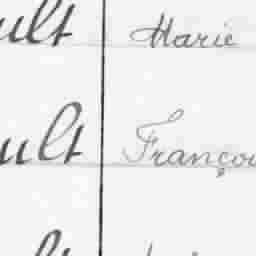 ult Marie
ult Françoi